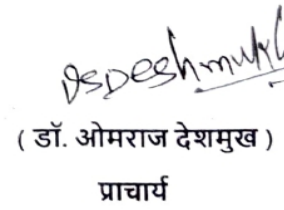 DSDeshmukh
( डॉ. ओमराज देशमुख )
प्राचार्य